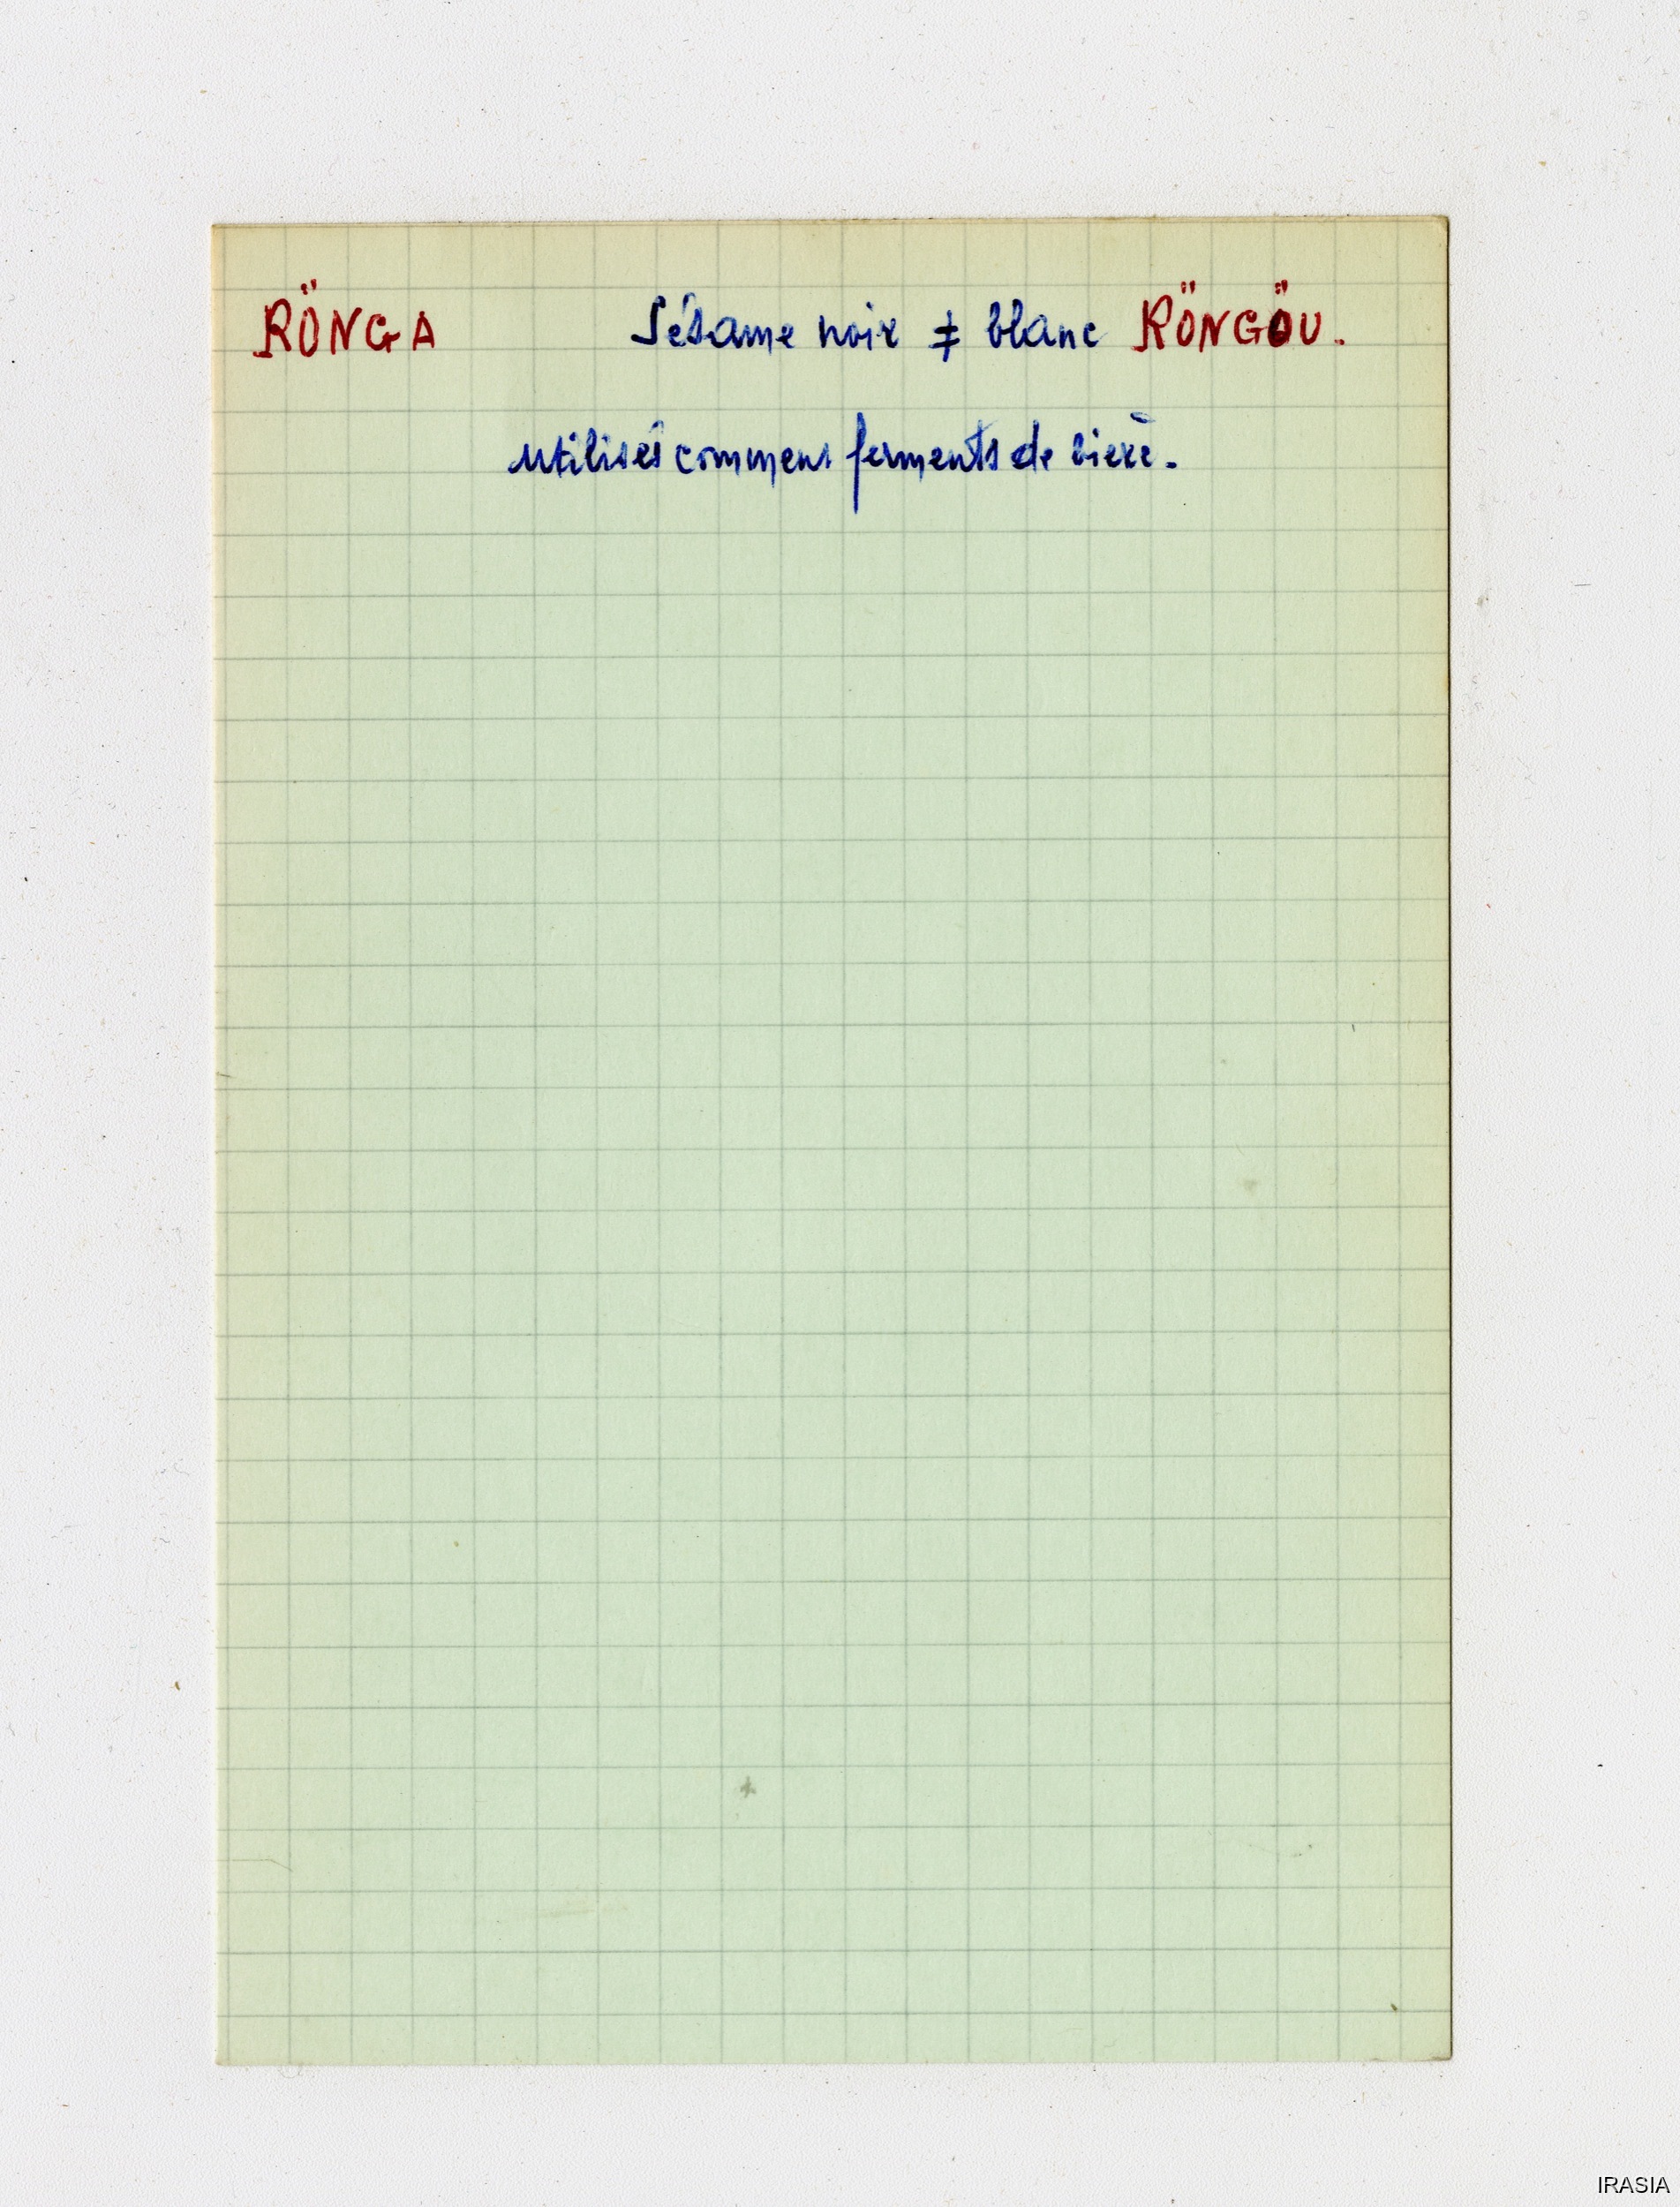 RÖNGA Sésame noir ≠ blanc RÖNGÖU.
utilisés commens ferments de bière.
IRASIA